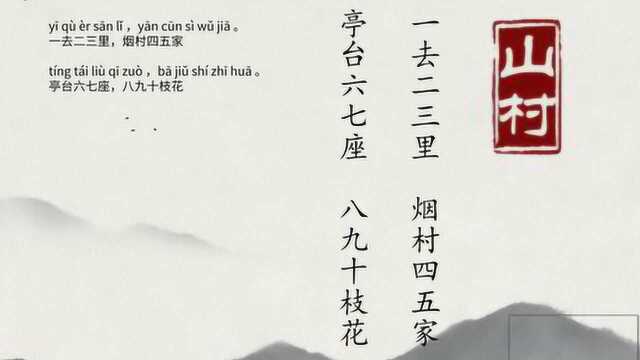 yī qù èr sān lǐ ，yān cūn sì wǔ jiā 。
一去二三里，烟村四五家
tíng tái liù qī zuò ，bā jiǔ shí zhī huā 。
亭台六七座，八九十枝花
山村
一去二三里 烟村四五家
亭台六七座 八九十枝花